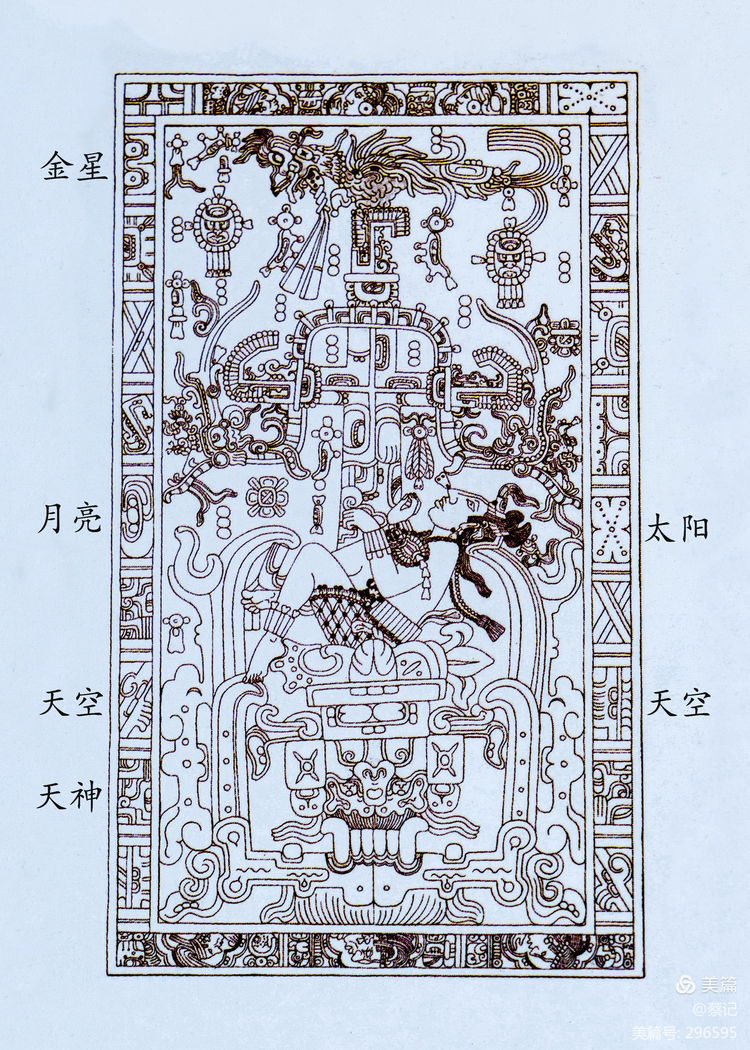 金星
月亮
太阳
天空
天空
天神
美篇
@蔡记
美篇号: 296595